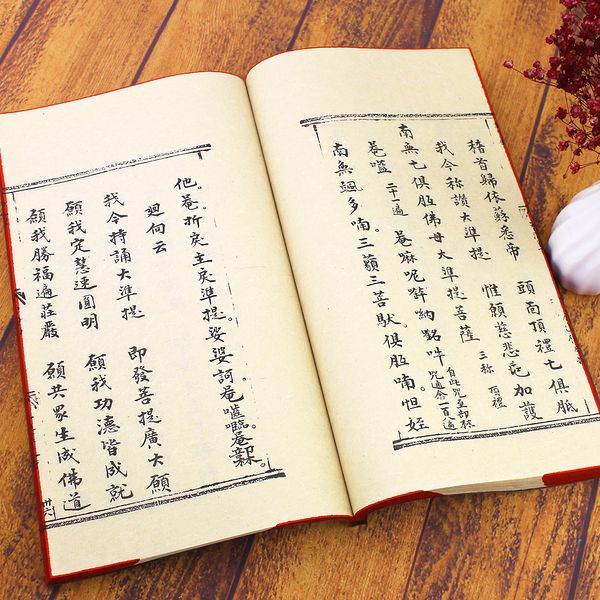 稽首歸依蘇悉帝 頭面頂禮七俱胝
我今稱讚大準提 惟願慈悲垂加護
南無七俱胝佛母大準提菩薩 三稱 頂禮
菴 二十一遍 菴嘛呢 納銘吽 自此咒至部林咒通念一百八遍
南無颯多喃。三藐三菩馱。俱胝喃怛姪
他。菴。折戾主戾準提。娑婆訶菴
迴向云
我今持誦大準提 即發菩提廣大願
願我定慧速圓明 願我功德皆成就
願我勝福遍莊嚴 願共眾生成佛道
廿六